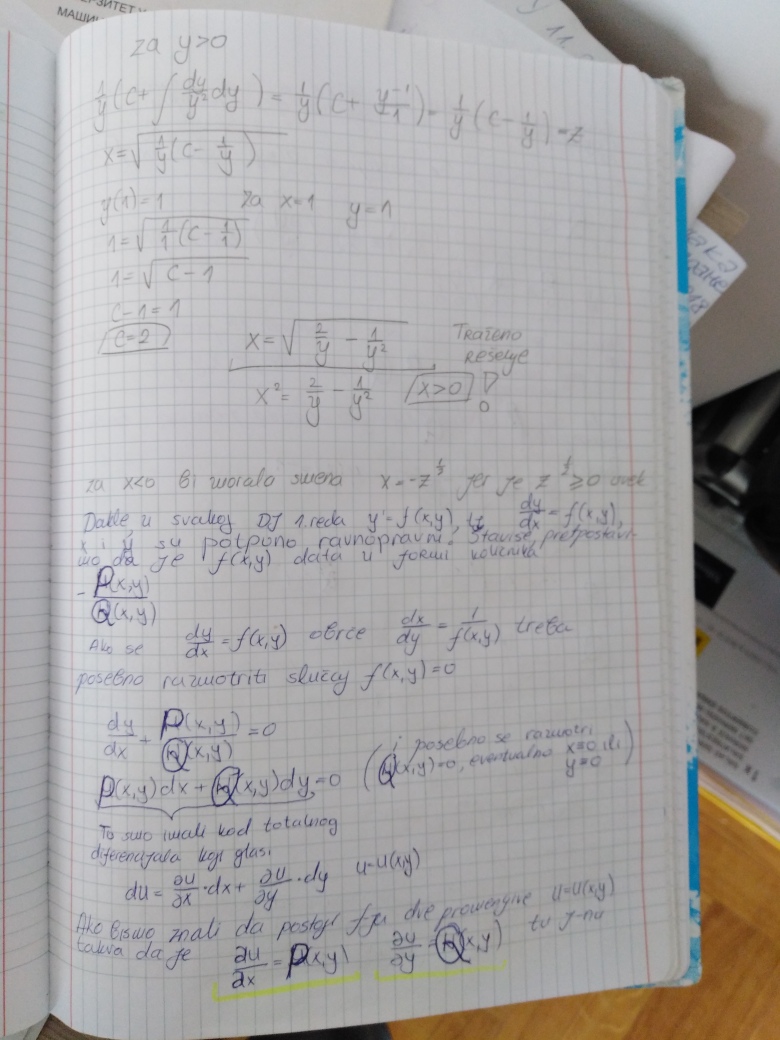 МАШИН
za y>0
1/y (c + ∫ dy/y² dy) = 1/y (c + y⁻¹/-1) = 1/y (c - 1/y) = z
x = √(1/y (c - 1/y))
y(1)=1 za x=1 y=1
1 = √(1/1 (c - 1/1))
1 = √(c - 1)
c-1=1
c=2
x = √(2/y - 1/y²) Traženo rešenje
x² = 2/y - 1/y² x>0 !
za x<0 bi morala smena x = -z^(1/2) jer je z^(1/2) ≥ 0 uvek
Dakle u svakoj DJ 1.reda y' = f(x,y), tj. dy/dx = f(x,y),
x i y su potpuno ravnopravni. Štaviše, pretpostavi-
mo da je f(x,y) data u formi količnika
- P(x,y)/Q(x,y)
Ako se dy/dx = f(x,y) obrće dx/dy = 1/f(x,y) treba
posebno razmotriti slučaj f(x,y)=0
dy/dx + P(x,y)/Q(x,y) = 0
P(x,y)dx + Q(x,y)dy = 0 (i posebno se razmotri
Q(x,y)=0, eventualno x=0 ili
y=0)
To smo imali kod totalnog
diferencijala koji glasi
du = ∂u/∂x · dx + ∂u/∂y · dy u=u(x,y)
Ako bismo znali da postoji f-ja dve promenjive u=u(x,y)
takva da je ∂u/dx = P(x,y) ∂u/∂y = Q(x,y) tu j-nu